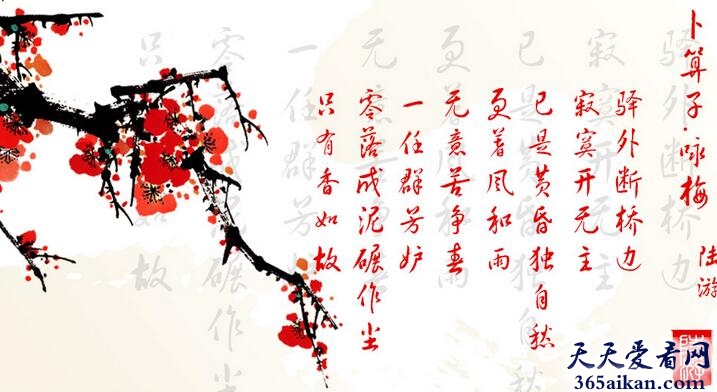 卜算子·咏梅
陆游
驿外断桥边
寂寞开无主
已是黄昏独自愁
更着风和雨
无意苦争春
一任群芳妒
零落成泥碾作尘
只有香如故
天天爱看网
365aikan.com